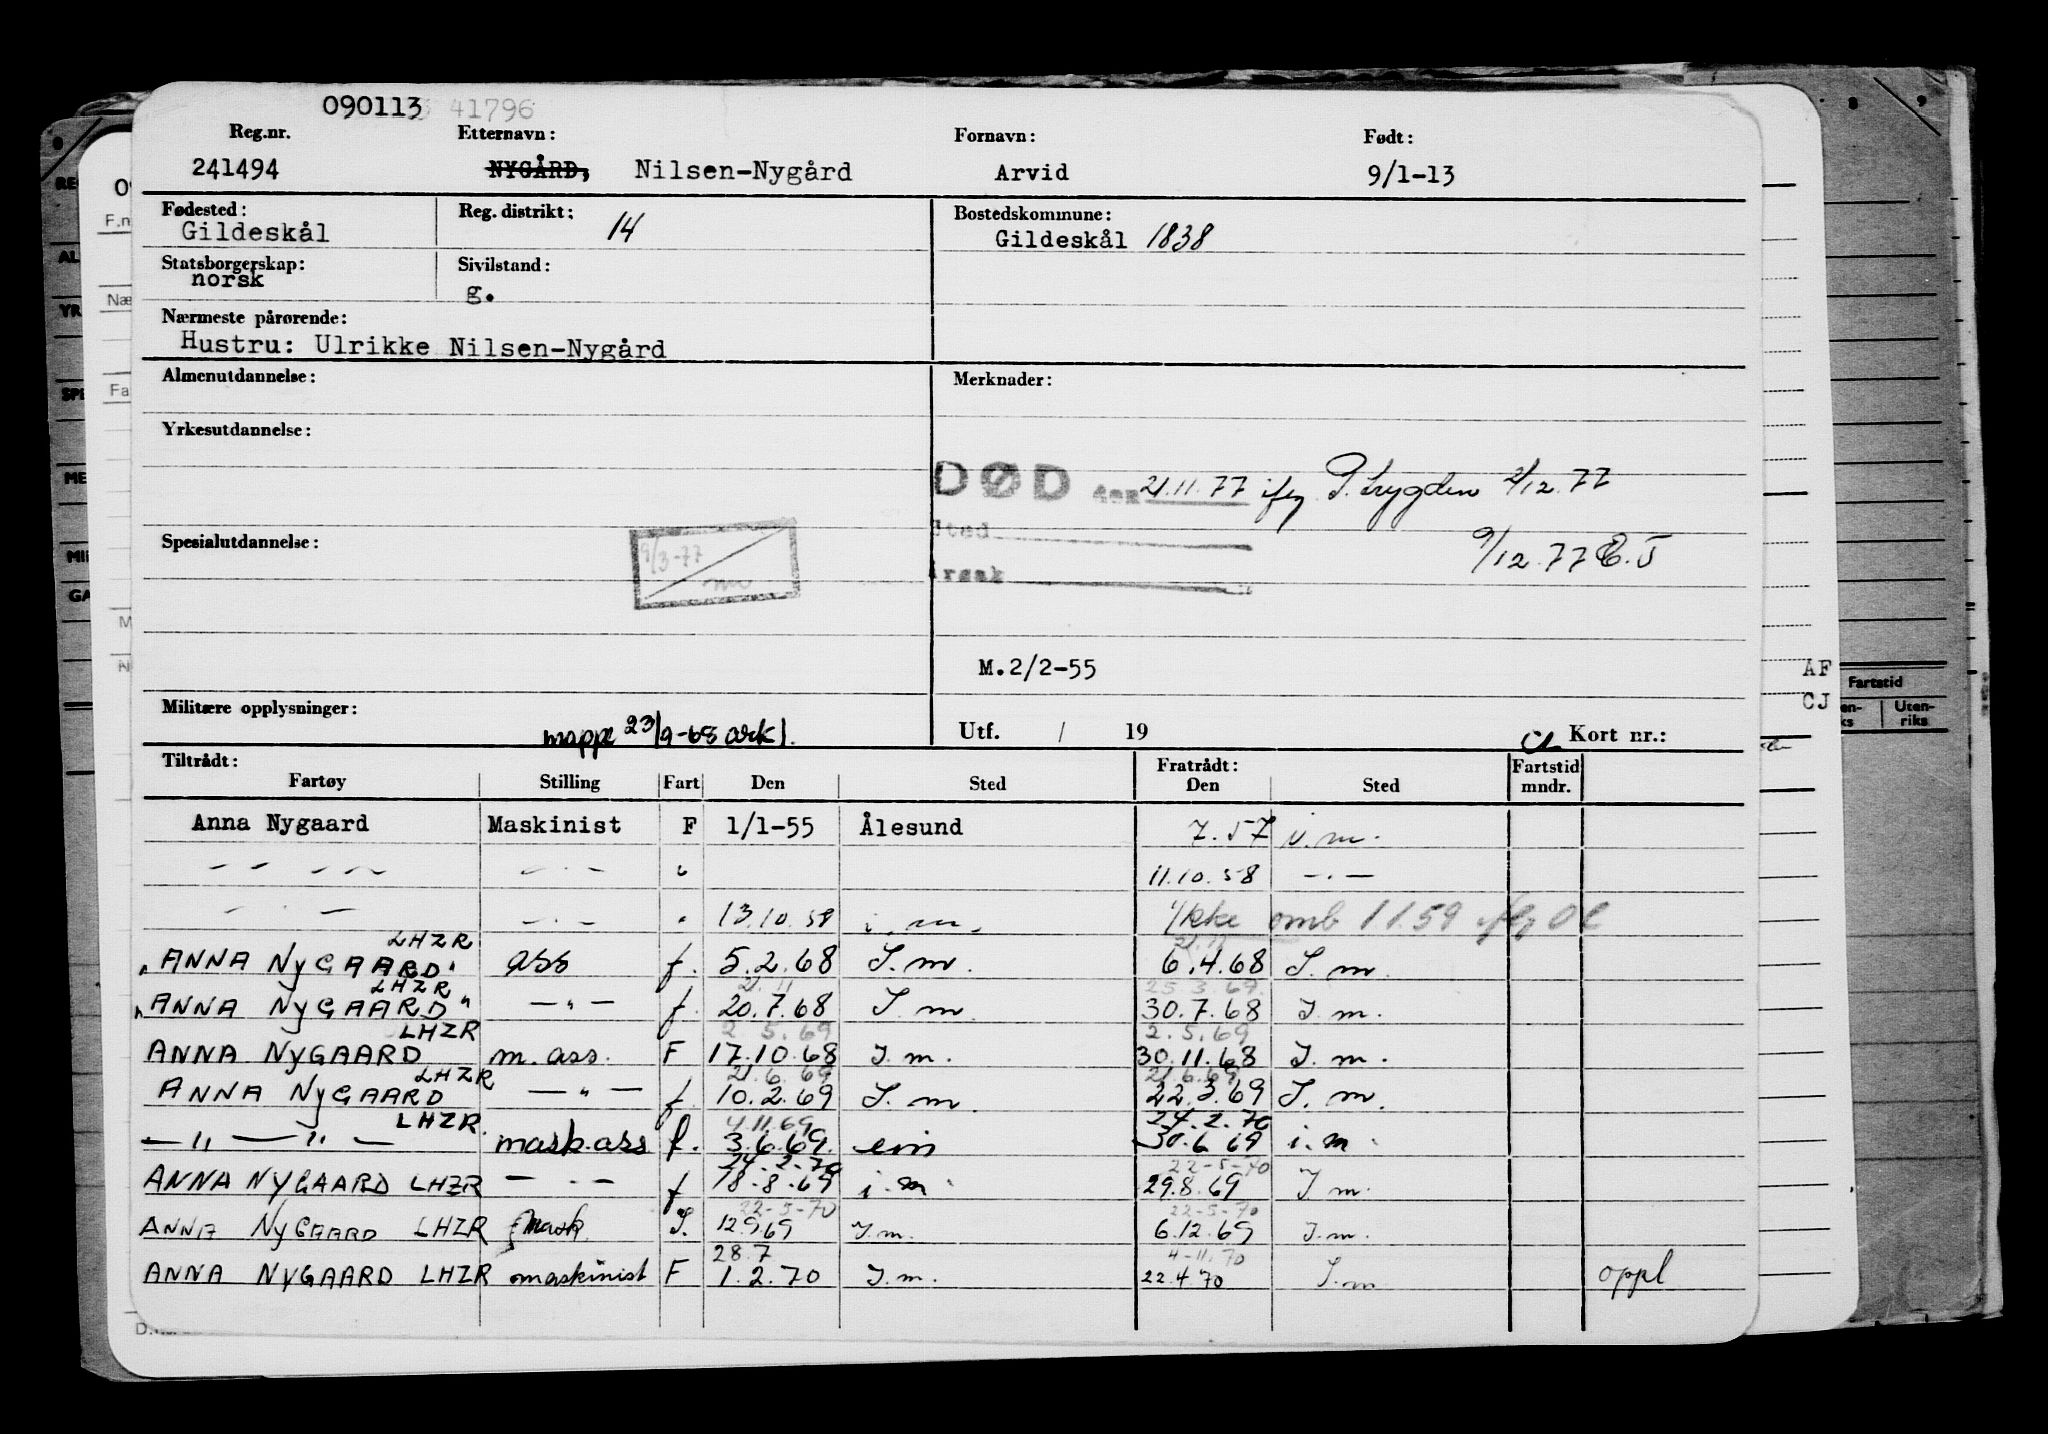 090113 41796
Reg.nr. Etternavn: Fornavn: Født:
241494 NYGÅRD, Nilsen-Nygård Arvid 9/1-13
Fødested: Reg. distrikt: 14 Bostedskommune:
Gildeskål Gildeskål 1838
Statsborgerskap: Sivilstand:
norsk g.
Nærmeste pårørende:
Hustru: Ulrikke Nilsen-Nygård
Almenutdannelse: Merknader:
Yrkesutdannelse:
DØD den 21.11.77 ifg P. trygden 2/12.77
Sted
Spesialutdannelse: 9/3-77 9/12.77 E.J
Årsak
M.2/2-55
Militære opplysninger: mappe 23/9-68 ark). Utf. / 19 Kort nr.:
Tiltrådt: Fratrådt: Fartstid
Fartøy Stilling Fart Den Sted Den Sted mndr.
Anna Nygaard Maskinist F 1/1-55 Ålesund 7.57 i.m.
— — — — - . - " 11.10.58 - . -
- . - - . - " 13.10.58 i.m. Ikke omb 1 1.59 iflg
LHZR 21.11
"ANNA NYGAARD" ass f. 5.2.68 I.m. 6.4.68 I.m.
LHZR 21.11 25.3.69
"ANNA NYGAARD" — " — f. 20.7.68 I.m. 30.7.68 I.m.
LHZR 2.5.69 2.5.69
ANNA NYGAARD m. ass. F 17.10.68 I.m. 30.11.68 I.m.
LHZR 21.6.69 21.6.69
ANNA NYGAARD — " — f 10.2.69 I.m. 22.3.69 I.m.
LHZR 4.11.69 24.2.70
— " — " — mask.ass f. 3.6.69. em 30.6 69 i.m.
24-2-70 22-5-70
ANNA NYGAARD LHZR — . — f 18.8.69 i.m. 29.8.69 I m.
22-5-70 22-5-70
ANNA NYGAARD LHZR Mask. I. 12.9.69 I.m. 6.12.69 I.m.
28.7 4-11.70
ANNA NYGAARD LHZR maskinist F 1.2.70 I.m. 22.4.70 I.m oppl
AF
CJ
Fartstid
Uten-
riks